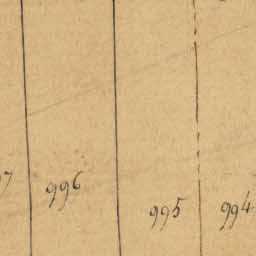 996
995
994